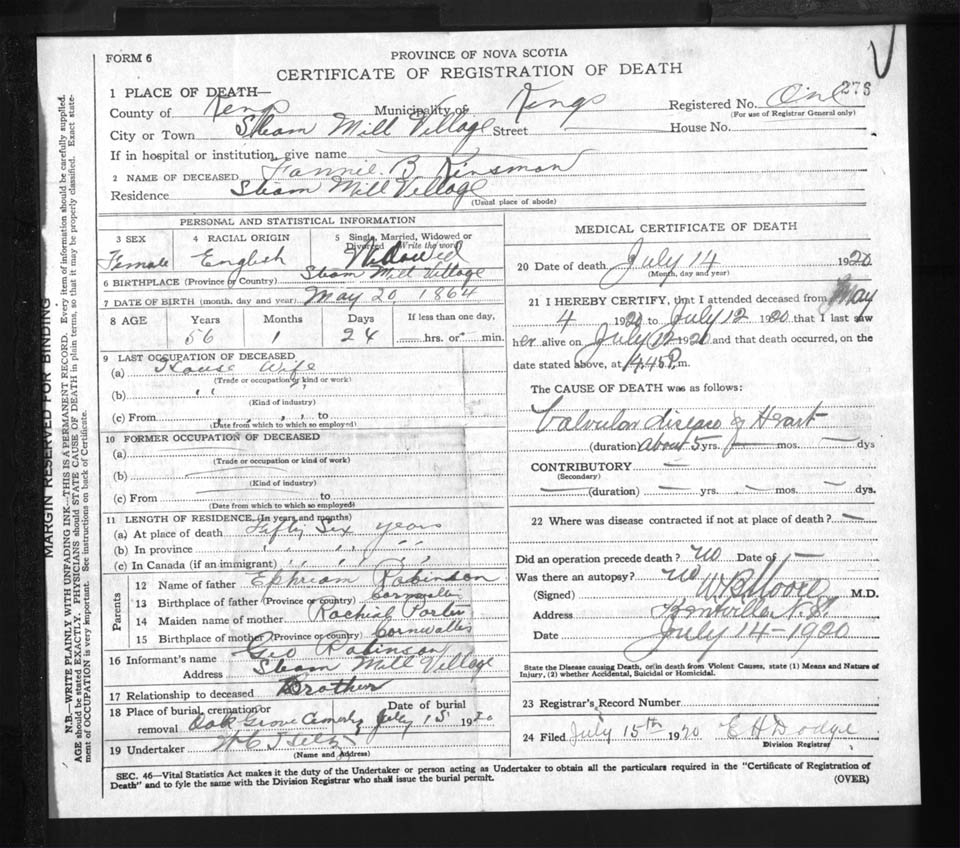 FORM 6
PROVINCE OF NOVA SCOTIA
CERTIFICATE OF REGISTRATION OF DEATH
1 PLACE OF DEATH—
County of Kings Municipality of Kings Registered No. One 273
(For use of Registrar General only)
City or Town Steam Mill Village Street House No.
If in hospital or institution, give name
2 NAME OF DECEASED Fannie B. Kinsman
Residence Steam Mill Village
(Usual place of abode)
PERSONAL AND STATISTICAL INFORMATION
3 SEX 4 RACIAL ORIGIN 5 Single, Married, Widowed or Divorced (Write the word)
Female English Widowed
6 BIRTHPLACE (Province or Country) Steam Mill Village
7 DATE OF BIRTH (month, day and year) May 20, 1864
8 AGE Years Months Days If less than one day,
56 1 24 hrs. or min.
9 LAST OCCUPATION OF DECEASED
(a) House Wife
(Trade or occupation or kind or work)
(b) " "
(Kind of industry)
(c) From " " " " to
(Date from which to which so employed)
10 FORMER OCCUPATION OF DECEASED
(a)
(Trade or occupation or kind of work)
(b)
(Kind of industry)
(c) From to
(Date from which to which so employed)
11 LENGTH OF RESIDENCE (In years and months)
(a) At place of death Fifty Six years
(b) In province " " " "
(c) In Canada (if an immigrant) " " " "
Parents
12 Name of father Ephriam Robinson
13 Birthplace of father (Province or country) Cornwallis
14 Maiden name of mother Rachial Porter
15 Birthplace of mother (Province or country) Cornwallis
16 Informant's name Geo Robinson
Address Steam Mill Village
17 Relationship to deceased Brother
18 Place of burial, cremation or removal Date of burial
Oak Grove Cemetry July 15 1920
19 Undertaker
(Name and Address)
MEDICAL CERTIFICATE OF DEATH
20 Date of death July 14 1920
(Month, day and year)
21 I HEREBY CERTIFY, that I attended deceased from May
4 1920 to July 12 1920 that I last saw
her alive on July 12 1920 and that death occurred, on the
date stated above, at 4.45 P. m.
The CAUSE OF DEATH was as follows:
Valvular disease of Heart
(duration) about 5 yrs. — mos. — dys
CONTRIBUTORY —
(Secondary)
(duration) — yrs. — mos. — dys.
22 Where was disease contracted if not at place of death? —
Did an operation precede death? no Date of —
Was there an autopsy? no
(Signed) W B Moore M.D.
Address Kentville N.S.
Date July 14-1920
State the Disease causing Death, or in death from Violent Causes, state (1) Means and Nature of
Injury, (2) whether Accidental, Suicidal or Homicidal.
23 Registrar's Record Number
24 Filed July 15th 1920 E H Dodge
Division Registrar
SEC. 46—Vital Statistics Act makes it the duty of the Undertaker or person acting as Undertaker to obtain all the particulars required in the "Certificate of Registration of
Death" and to fyle the same with the Division Registrar who shall issue the burial permit.
(OVER)
MARGIN RESERVED FOR BINDING
N.B.—WRITE PLAINLY WITH UNFADING INK—THIS IS A PERMANENT RECORD. Every item of information should be carefully supplied.
AGE should be stated EXACTLY. PHYSICIANS should STATE CAUSE OF DEATH in plain terms, so that it may be properly classified. Exact state-
ment of OCCUPATION is very important. See instructions on back of Certificate.